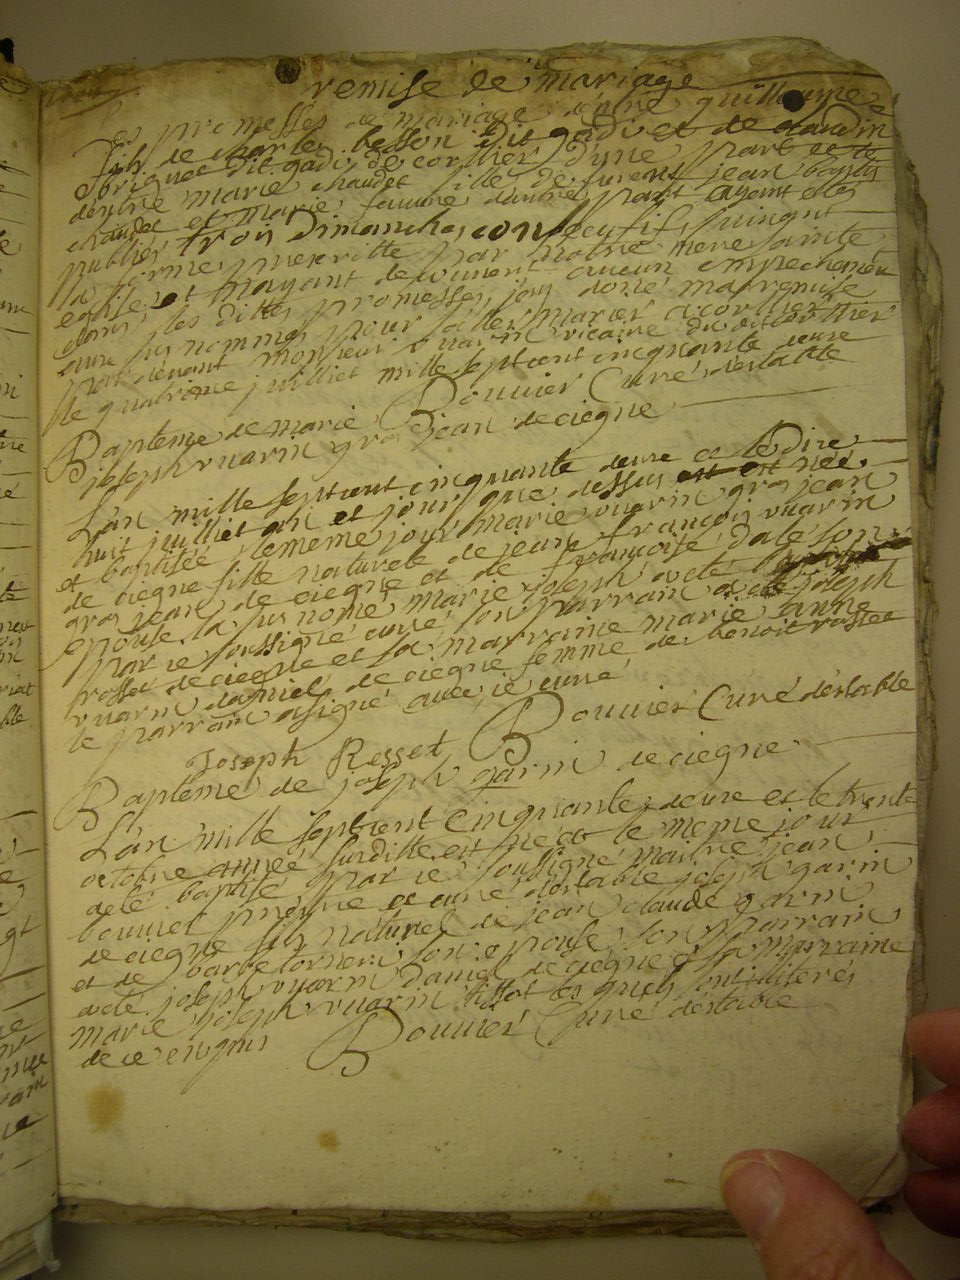 remise de mariage
Les promesses de mariage dentre guilliaume
fils de charles besson dit gadi et de claudin
brignee dit gadi de corthier d'une part et
dentre marie chaudet fille de furent jean baptis
chaudet et marie fauvre dautre part ayant étés
publiés trois Dimanches consecutifs suivant
la forme prescritte par notre mere sainte
eglise et n'ayant decouvert aucun empechement
dans les dittes promesses, j'ay donné ma remise
aux sus nommés pour s'aller marier a corthier
par devant monsieur vuarin vicaire dudit corthier
le quatrieme juilliet mille septcent cinquante deux
Bouvier Curé destable
Baptême de marie
joseph vuarin gros jean de ciegne
L'an mille septcent cinquante deux et le Dix
huit juilliet an et jour que dessus est née
et baptisée le meme jour marie vuarin gros jean
de ciegne fille naturele de jean françois vuarin
gros jean de ciegne et de françoise dale son
epouse la sus nomé marie joseph a eté
par ie soussigné curé son parrain a eté joseph
rosset de ciegne et sa marraine marie anne
vuarin daniel de ciegne femme de benoit rosset
le parrain a signé avec ie curé
Joseph Resset Bouvier Curé destable
Baptême de joseph garin de ciegne
L'an mille septcent cinquante deux et le trente
octobre année surditte est né et le meme jour
a eté baptisé par ie soussigné maitre jean
bouvier prêtre et curé destable joseph garin
de ciegne fils naturel de jean claude garin
et de barbe torneri son epouse, son parrain
a eté joseph vuarin daniel de ciegne et sa marraine
marie joseph vuarin tissot les quels sont illiterés
de ce enquis Bouvier Curé destable